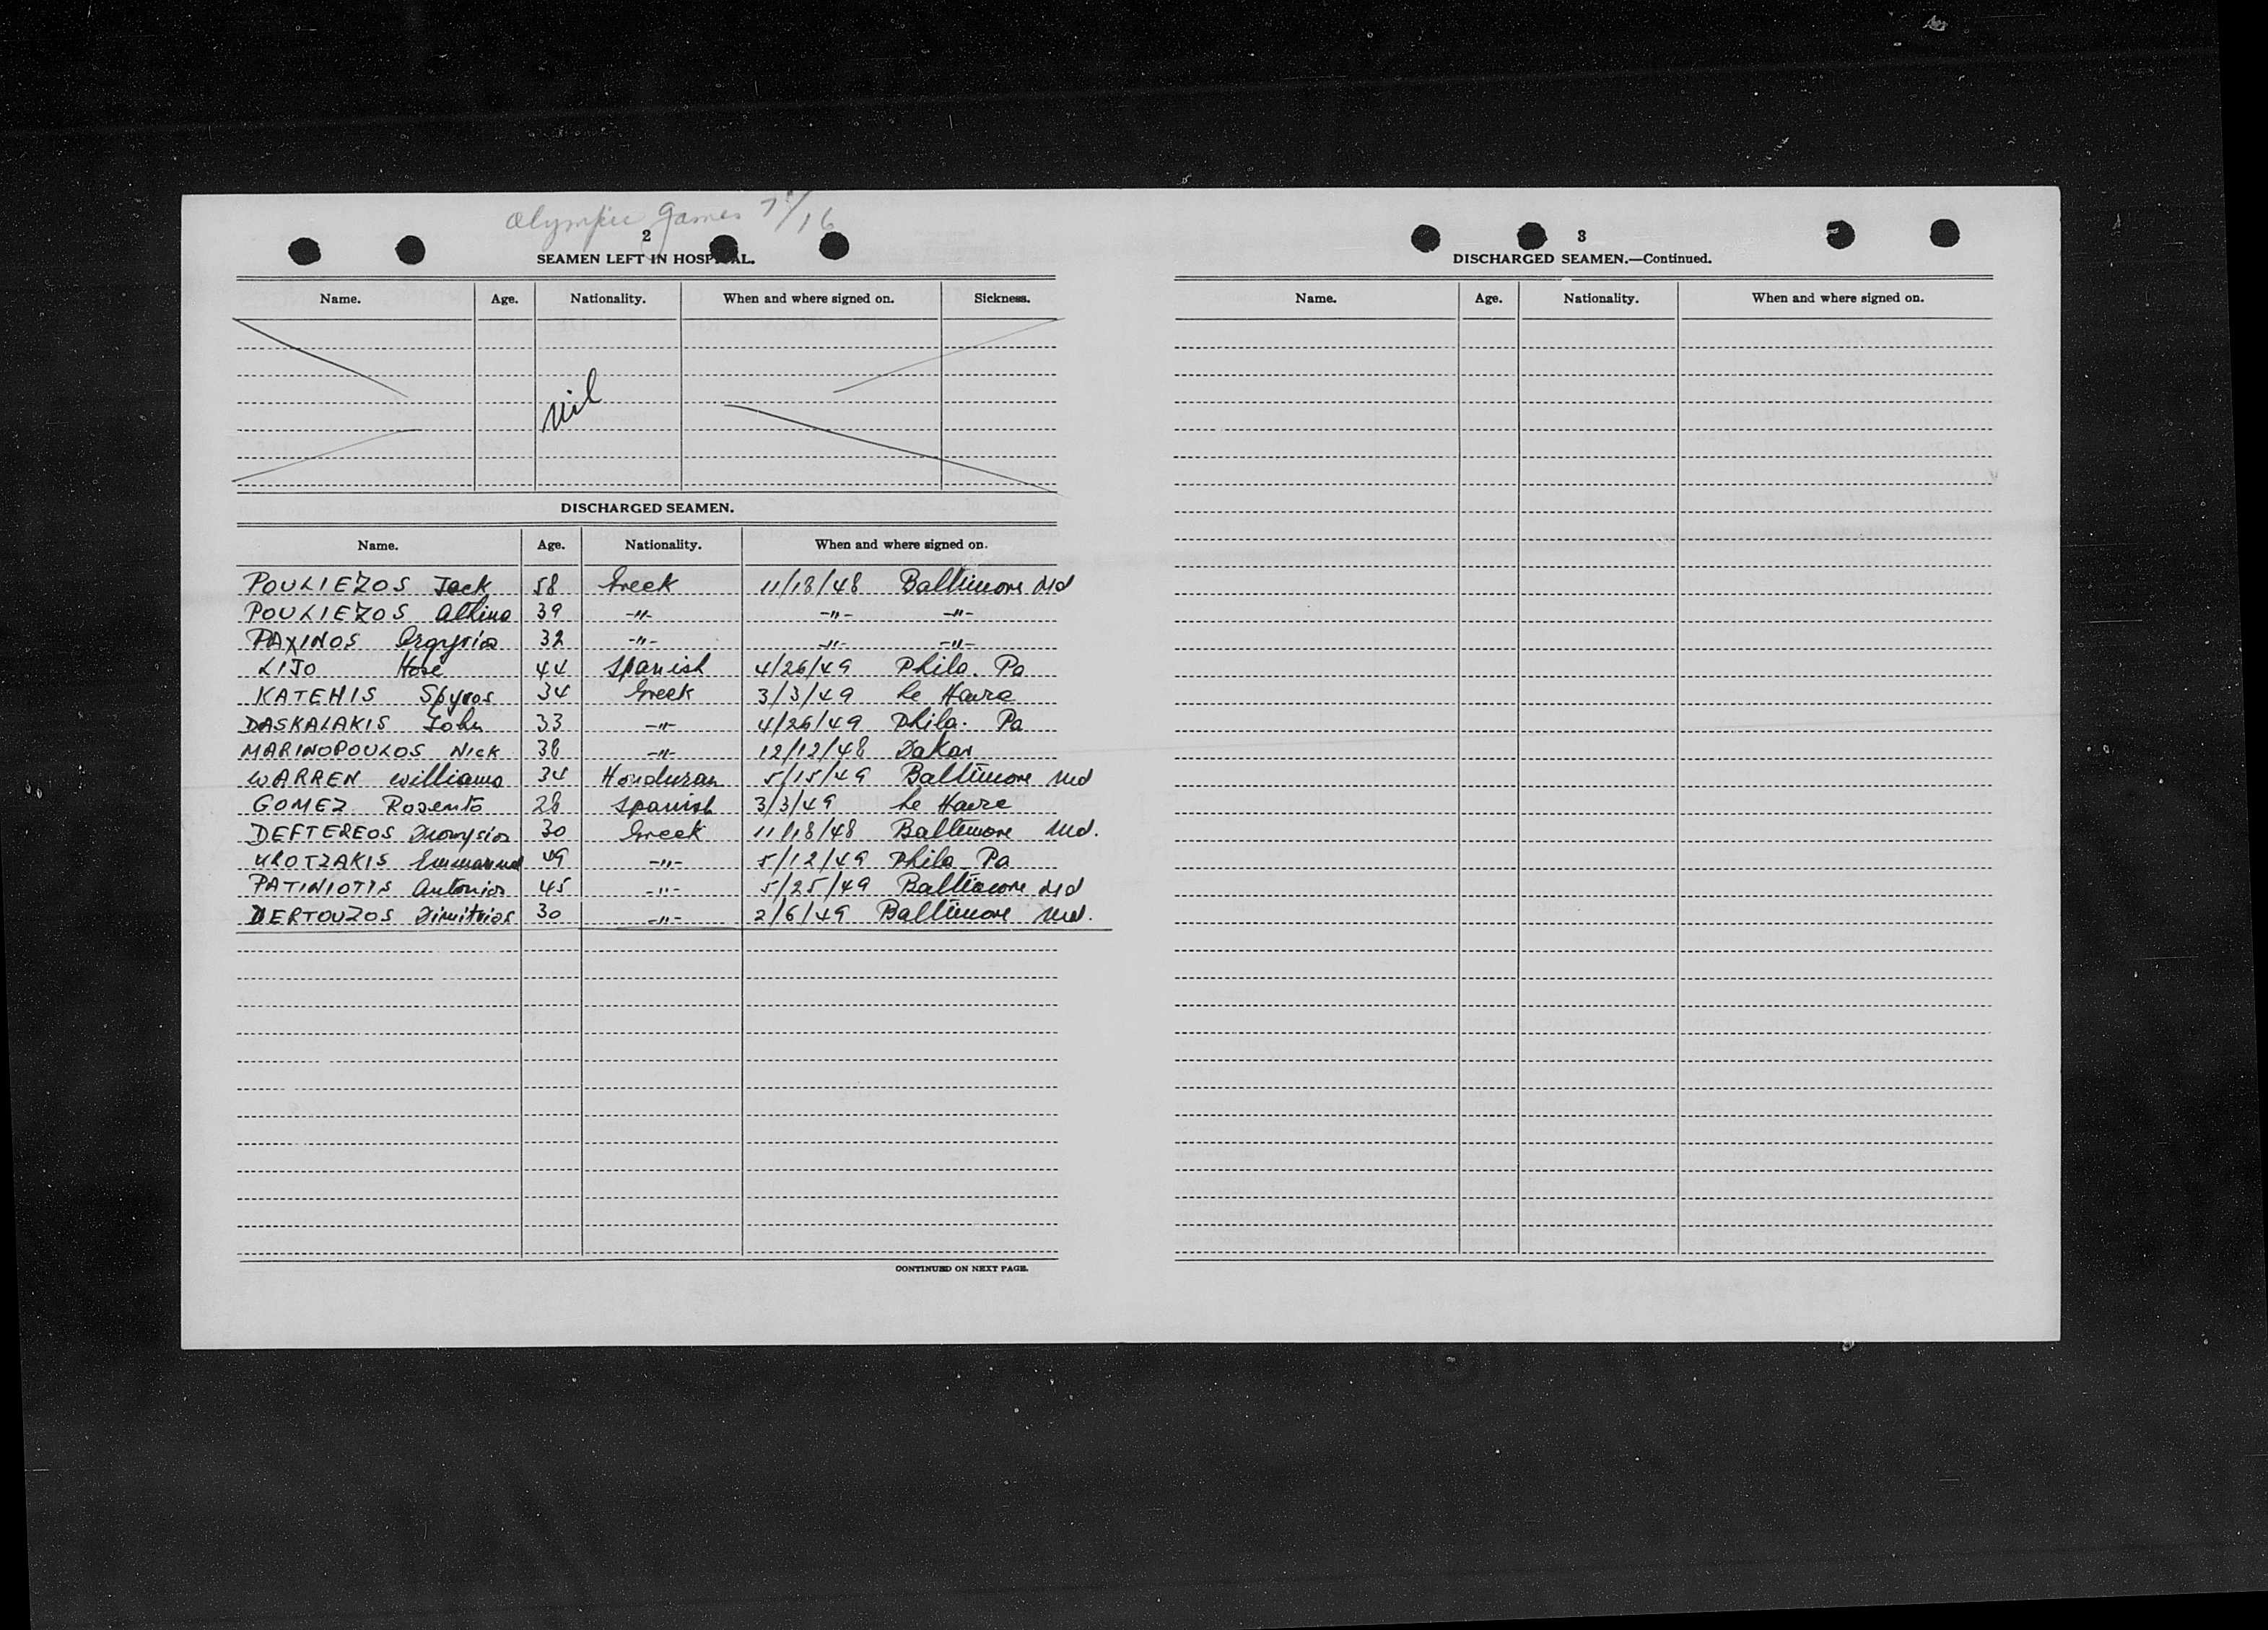 Olympic Games 7/16
2
SEAMEN LEFT IN HOSPITAL.
Name. Age. Nationality. When and where signed on. Sickness.
nil
DISCHARGED SEAMEN.
Name. Age. Nationality. When and where signed on.
POULIEZOS Jack 58 Greek 11/18/48 Baltimore Md
POULIEZOS Athina 39 -"- -"- -"-
PAXINOS Argyrios 32 -"- -"- -"-
LIJO Hose 44 Spanish 4/26/49 Phila. Pa
KATEHIS Spyros 34 Greek 3/3/49 Le Havre
DASKALAKIS John 33 -"- 4/26/49 Phila. Pa
MARINOPOULOS Nick 38 -"- 12/12/48 Dakar
WARREN Williams 34 Honduran 5/15/49 Baltimore Md
GOMEZ Rosento 28 Spanish 3/3/49 Le Havre
DEFTEREOS Dionysios 30 Greek 11/18/48 Baltimore Md.
Emmanuel 49 -"- 5/12/49 Phila Pa
PATINIOTIS Antonios 45 -"- 5/25/49 Baltimore Md
DERTOUZOS Dimitrios 30 -"- 2/6/49 Baltimore Md.
CONTINUED ON NEXT PAGE.
3
DISCHARGED SEAMEN.—Continued.
Name. Age. Nationality. When and where signed on.